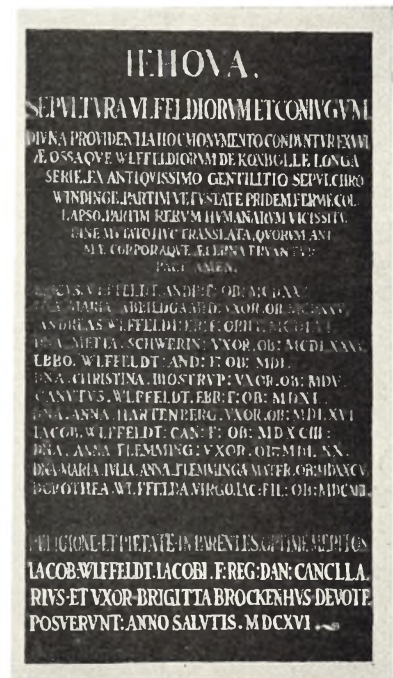 IEHOVA.
SEPVLTVRA VLFELDIORVM ET CONIVGVM
DIVINA PROVIDENTIA HOC MONVMENTO CONDVNTVR EXVVI
Æ OSSAQVE WLFELDIORVM DE KOXBOLLE LONGA
SERIE. EX ANTIQVISSIMO GENTILITIO SEPVLCHRO
WINDINGE. PARTIM VETVSTATE PRIDEM FERME COL
LAPSO. PARTIM RERVM HVMANARVM VICISSITV
DINE MVTATO HVC TRANSLATA, QVORVM ANI
MÆ CORPORAQVE ÆTERNA FRVANTVR
PACE AMEN.
WLFELDT: OB: MCDXX
MARIA VXOR. OB:
ANDREAS WLFELDT: F: OBIIT:
DNA. METTA. SCHWERIN: VXOR. OB: MCDLXXXV.
EBBO. WLFELDT: AND: F: OB: MDI.
DNA. CHRISTINA. BIOSTRVP: VXOR. OB: MDV.
CANVTVS. WLFELDT. EBB: F: OB: MDXL.
DNA. ANNA. HARTENBERG. VXOR. OB: MDLXVI
IACOB. WLFFELDT: CAN: F: OB: MDXCIII:
DNA. ANNA FLEMMING: VXOR. OB: MDLXX.
DNA MARIA. IVLIA. ANNA. FLEMMINGA MATER. OB: MDXXCV.
DOROTHEA. WLFFELDA VIRGO. IAC: FIL: OB:
RELIGIONE ET PIETATE IN PARENTES OPTIME MERITOS
IACOB: WLFFELDT. IACOBI. F: REG: DAN: CANCLLA.
RIVS ET VXOR BRIGITTA BROCKENHVS DEVOTE
POSVERVNT: ANNO SALVTIS. MDCXVI